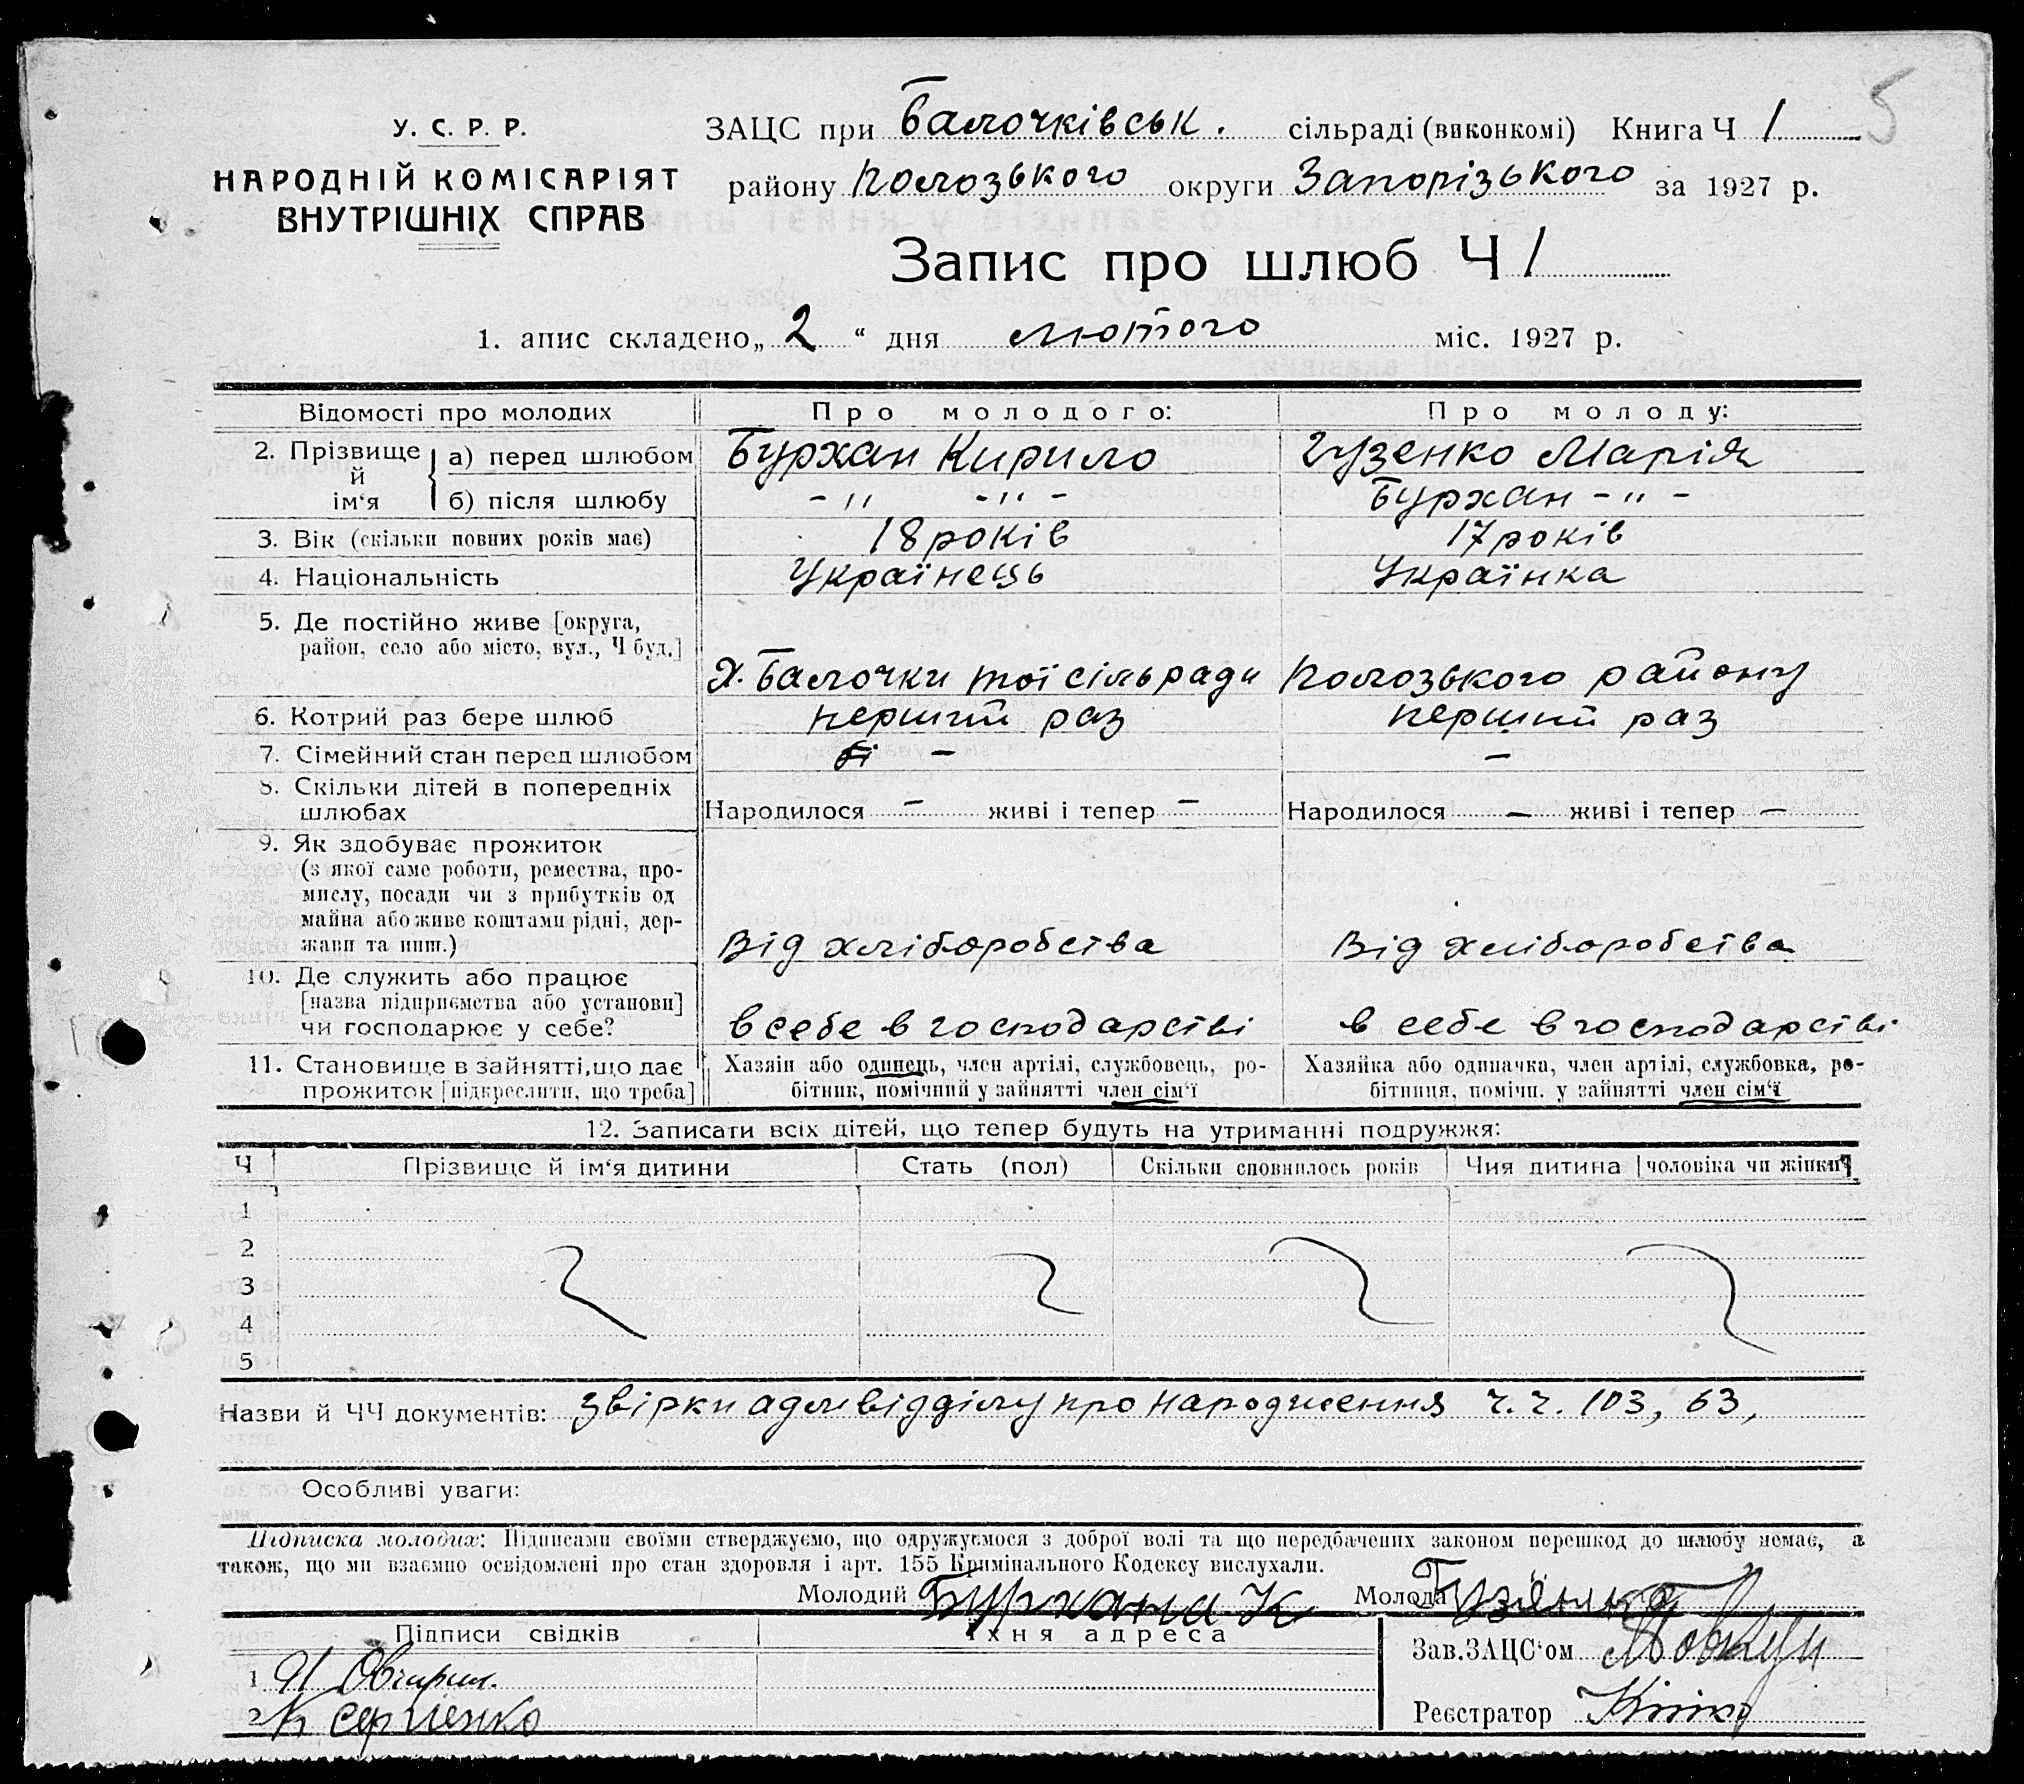 5
У. С. Р. Р.
НАРОДНІЙ КОМІСАРІЯТ
ВНУТРІШНІХ СПРАВ
ЗАЦС при Балочківськ. сільраді (виконкомі) Книга Ч 1
району Пологзького округи Запорізького за 1927 р.
Запис про шлюб Ч 1
1. апис складено „ 2 “ дня лютого міс. 1927 р.
Відомості про молодих Про молодого: Про молоду:
2. Прізвище й ім‘я
а) перед шлюбом Бурхан Кирило Гузенко Марія
б) після шлюбу -"- -"- Бурхан -"-
3. Вік (скільки повних років має) 18 років 17 років
4. Національність Українець Українка
5. Де постійно живе [округа,
район, село або місто, вул., Ч буд.]
Х. Балочки тої сільради Пологзького району
6. Котрий раз бере шлюб перший раз перший раз
7. Сімейний стан перед шлюбом – –
8. Скільки дітей в попередніх
шлюбах Народилося – живі і тепер – Народилося – живі і тепер –
9. Як здобуває прожиток
(з якої саме роботи, ремества, про-
мислу, посади чи з прибутків од
майна або живе коштами рідні, дер-
жави та инш.) Від хліборобства Від хліборобства
10. Де служить або працює
[назва підприємства або установи]
чи господарює у себе? в себе в господарстві в себе в господарстві
11. Становище в зайнятті, що дає
прожиток [підкреслити, що треба]
Хазяїн або одинець, член артілі, службовець, ро-
бітник, помічний у зайнятті член сім‘ї
Хазяйка або одиначка, член артілі, службовка, ро-
бітниця, помічн. у зайнятті член сім‘ї
12. Записати всіх дітей, що тепер будуть на утриманні подружжя:
Ч Прізвище й ім‘я дитини Стать (пол) Скільки сповнилось років Чия дитина [чоловіка чи жінки]
1
2
3
4
5
Назви й ЧЧ документів: звірки адмвідділу про народження ч.ч. 103, 63,
Особливі уваги:
Підписка молодих: Підписами своїми стверджуємо, що одружуємося з доброї волі та що передбачених законом перешкод до шлюбу немає, а
також, що ми взаємно освідомлені про стан здоровля і арт. 155 Кримінального Кодексу вислухали.
Молодий Бурхана К Молода
Підписи свідків Їхня адреса
Зав. ЗАЦС‘ом
1
2 К Сергієнко
Реєстратор